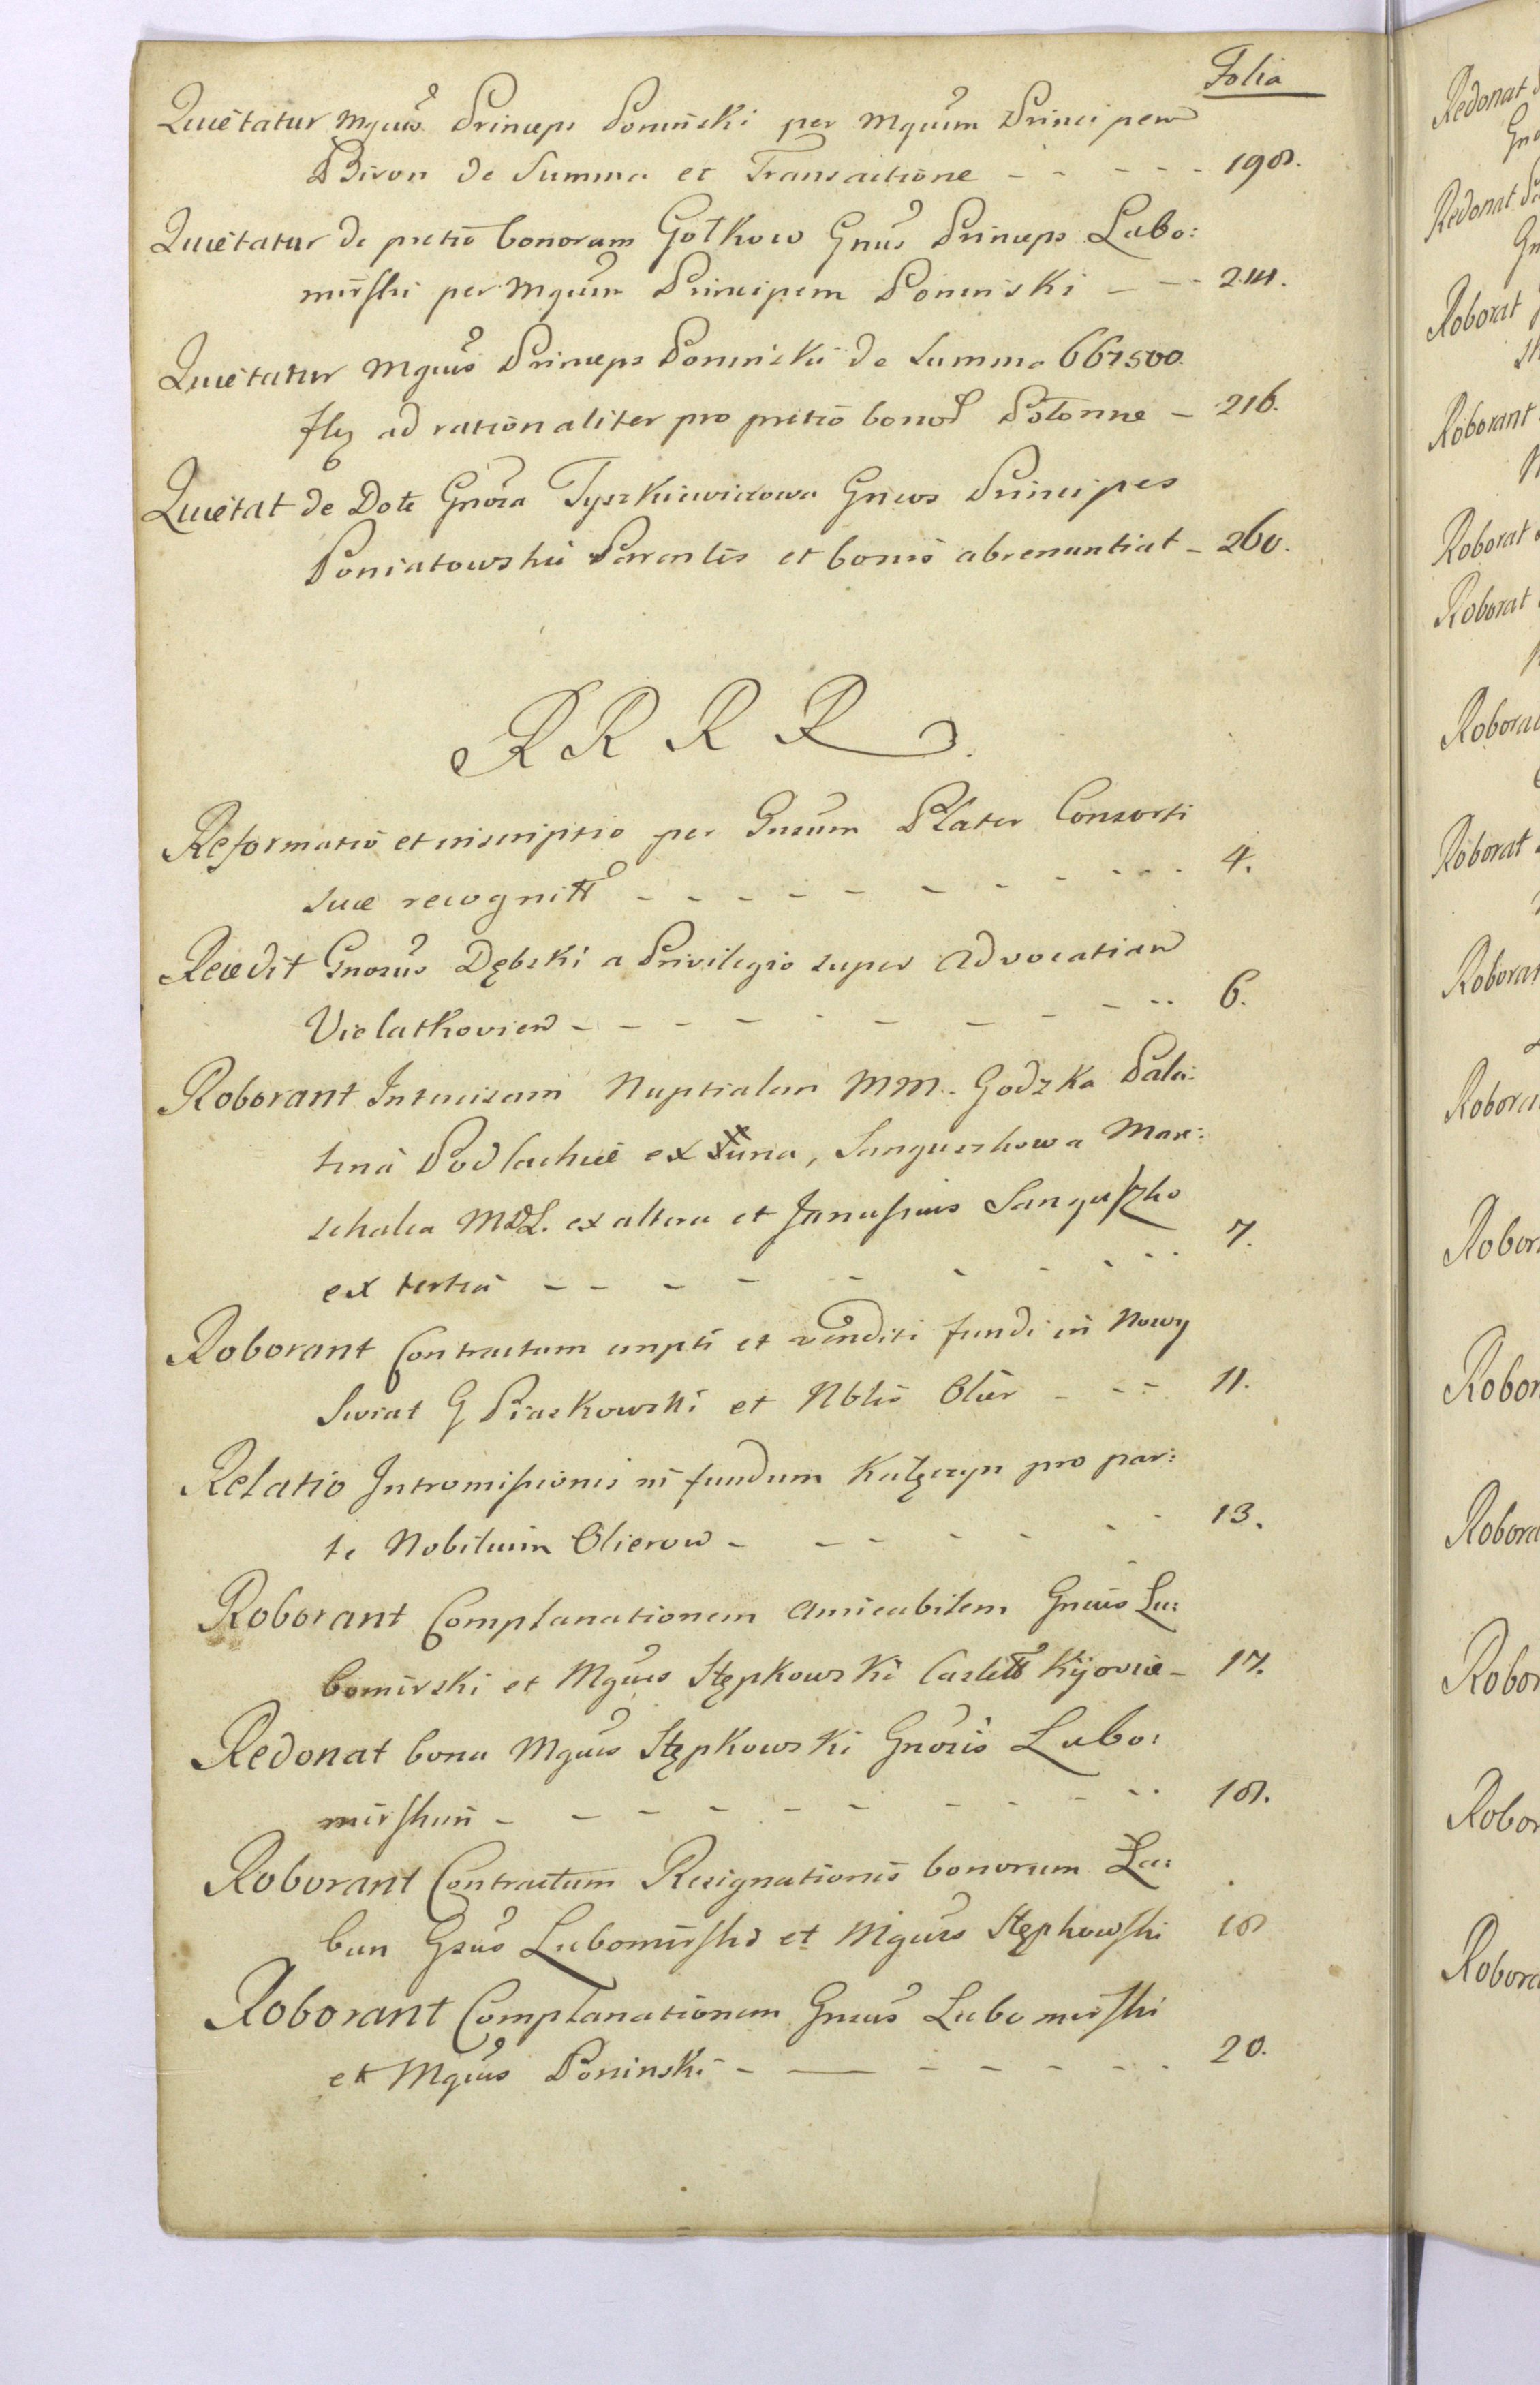 Folia
Quietatur Mgnus Princeps Poniński per Mgnum Principem
Biron de Summa et Transactione - - - - - 198.
Quietatur de pretio bonorum Gołkow Gnus Princeps Lubo:
mirski per Mgnum Principem Poninski - - - 214.
Quietatur Mgnus Princeps Poninski de Summa 667500.
flq ad rationaliter pro pretio bonoR Połonne - 216.
Quietat de Dote Gnosa Tyszkiewiczowa Gneos Principes
Poniatowskie Parentes et bonis abrenuntiat - 260.
R R R R.
Reformatio et inscriptio per Gnsum Plater Consorti
suæ recognitt - - - - - - - - - - 4.
Recedit Gnosus Dębski a Privilegio super Advocatiam
Vielatkovien - - - - - - - - - - 6.
Roborant Intercisam Nuptialem MM. Godzka Pala:
tina Podlachiæ ex una, Sanguszkowa Mare:
schalca MDL. ex altera et Janussius Sanguszko
ex tertia - - - - - - - - - 7.
Roborant Contractum empti et venditi fundi in Nowy
Swiat G Piaskowski et Nblis Olier - - - 11.
Relatio Intromissionis in fundum Kałęczyn pro par:
te Nobilium Olierow - - - - - - - 13.
Roborant Complanationem amicabilem Gneus Lu:
bomirski et Mgnus Stępkowski Castett Kijoviæ - 17.
Redonat bona Mgnus Stępkowski Gnosis Lubo:
mirskim - - - - - - - - - - 18.
Roborant Contractum Resignationis bonorum La:
bun Gsus Lubomirski et Mgnus Stępkowski 18
Roborant Complanationem Gneus Lubomirski
et Mgnus Poninski - - - - - - - 20.
Redonat
Redonat
Roborat
Roborant
Roborat
Roborat
Roborat